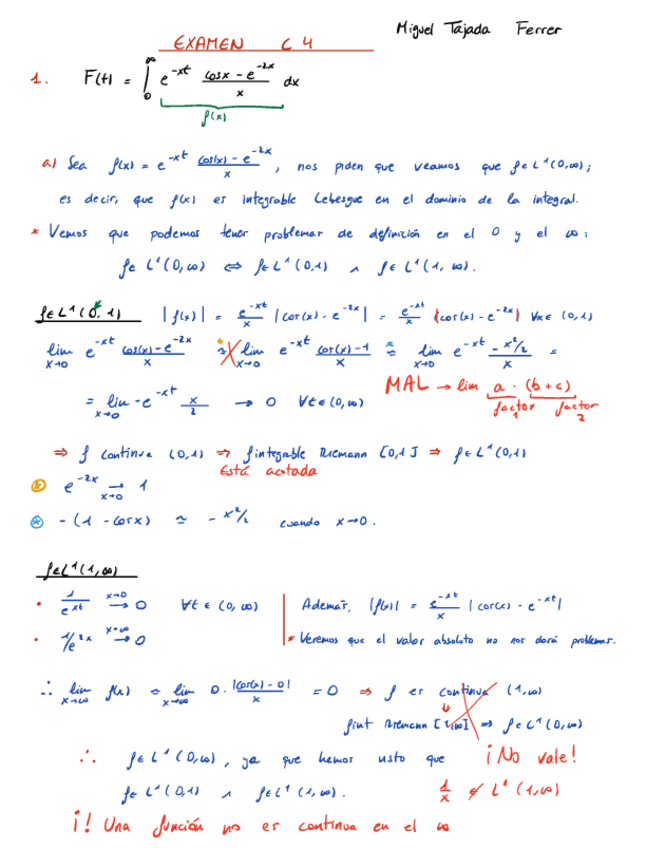 Miguel Tajada Ferrer
EXAMEN C4
1. F(t) = ∫₀^∞ e^{-xt} (cosx - e^{-2x})/x dx
f(x)
a) Sea f(x) = e^{-xt} (cos(x) - e^{-2x})/x, nos piden que veamos que f∈L¹(0,∞);
es decir, que f(x) es integrable Lebesgue en el dominio de la integral.
* Vemos que podemos tener problemas de definición en el 0 y el ∞:
f∈L¹(0,∞) ⇔ f∈L¹(0,1) ∧ f∈L¹(1,∞).
f∈L¹(0,1) |f(x)| = e^{-xt}/x |cos(x) - e^{-2x}| = e^{-xt}/x |cos(x) - e^{-2x}| ∀x∈(0,1)
lim_{x→0} e^{-xt} (cos(x) - e^{-2x})/x ≃ lim_{x→0} e^{-xt} (cos(x) - 1)/x ≃ lim_{x→0} e^{-xt} (-x²/2)/x =
= lim_{x→0} -e^{-xt} x/2 → 0 ∀t∈(0,∞)
MAL → lim a · (b+c)
factor 1 factor 2
⇒ f continua (0,1) ⇒ f integrable Riemann [0,1] ⇒ f∈L¹(0,1)
Está acotada
* e^{-2x} →_{x→0} 1
* -(1 - cosx) ≃ -x²/2 cuando x→0.
f∈L¹(1,∞)
• 1/e^{xt} →^{x→0} 0 ∀t∈(0,∞)
• 1/e^{2x} →^{x→∞} 0
Además, |f(x)| = e^{-xt}/x |cos(x) - e^{-xt}|
* Veremos que el valor absoluto no nos dará problemas.
∴ lim_{x→∞} f(x) = lim_{x→∞} 0 · |cos(x) - 0|/x = 0 ⇒ f es continua (1,∞)
⇓
f int Riemann [1,∞] ⇒ f∈L¹(0,∞)
∴ f∈L¹(0,∞), ya que hemos visto que
f∈L¹(0,1) ∧ f∈L¹(1,∞).
¡No vale!
1/x ∉ L¹(1,∞)
¡! Una función no es continua en el ∞